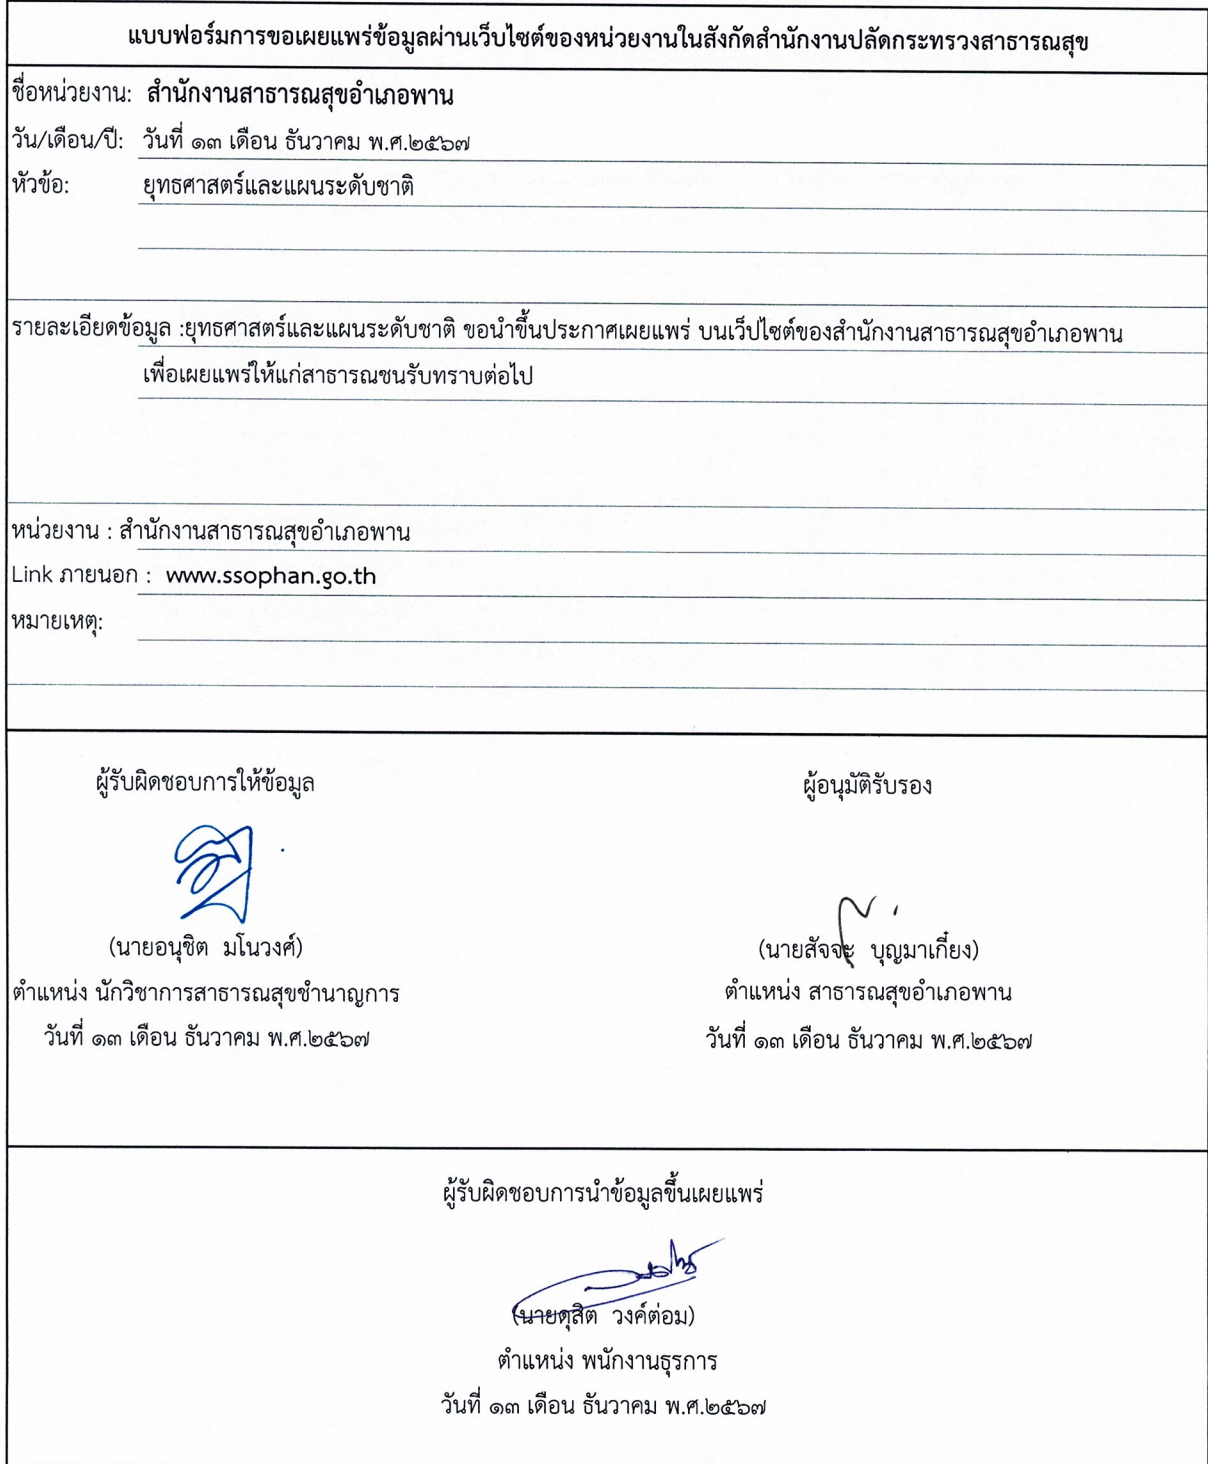 แบบฟอร์มการขอเผยแพร่ข้อมูลผ่านเว็บไซต์ของหน่วยงานในสังกัดสำนักงานปลัดกระทรวงสาธารณสุข
ชื่อหน่วยงาน: สำนักงานสาธารณสุขอำเภอพาน
วัน/เดือน/ปี: วันที่ ๑๓ เดือน ธันวาคม พ.ศ.๒๕๖๗
หัวข้อ: ยุทธศาสตร์และแผนระดับชาติ
รายละเอียดข้อมูล :ยุทธศาสตร์และแผนระดับชาติ ขอนำขึ้นประกาศเผยแพร่ บนเว็ปไซต์ของสำนักงานสาธารณสุขอำเภอพาน
เพื่อเผยแพร่ให้แก่สาธารณชนรับทราบต่อไป
หน่วยงาน : สำนักงานสาธารณสุขอำเภอพาน
Link ภายนอก : www.ssophan.go.th
หมายเหตุ:
ผู้รับผิดชอบการให้ข้อมูล
(นายอนุชิต มโนวงศ์)
ตำแหน่ง นักวิชาการสาธารณสุขชำนาญการ
วันที่ ๑๓ เดือน ธันวาคม พ.ศ.๒๕๖๗
ผู้อนุมัติรับรอง
(นายสัจจะ บุญมาเกี๋ยง)
ตำแหน่ง สาธารณสุขอำเภอพาน
วันที่ ๑๓ เดือน ธันวาคม พ.ศ.๒๕๖๗
ผู้รับผิดชอบการนำข้อมูลขึ้นเผยแพร่
(นายดุสิต วงค์ต่อม)
ตำแหน่ง พนักงานธุรการ
วันที่ ๑๓ เดือน ธันวาคม พ.ศ.๒๕๖๗